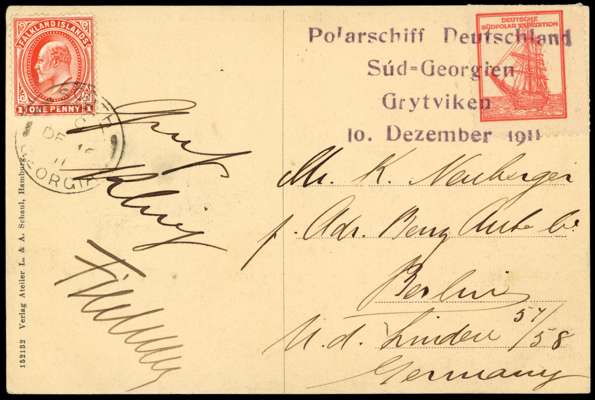 FALKLAND ISLANDS
1 ONE PENNY 1
DE 16
11
GEORGIA
Polarschiff Deutschland
Süd-Georgien
Grytviken
10. Dezember 1911
DEUTSCHE
SÜDPOLAR EXPEDITION
Mr. K. Neuberger
p. Adr.
Berlin
U. d. Linden 57/58
Germany
152132 Verlag Atelier L. & A. Schaul, Hamburg.